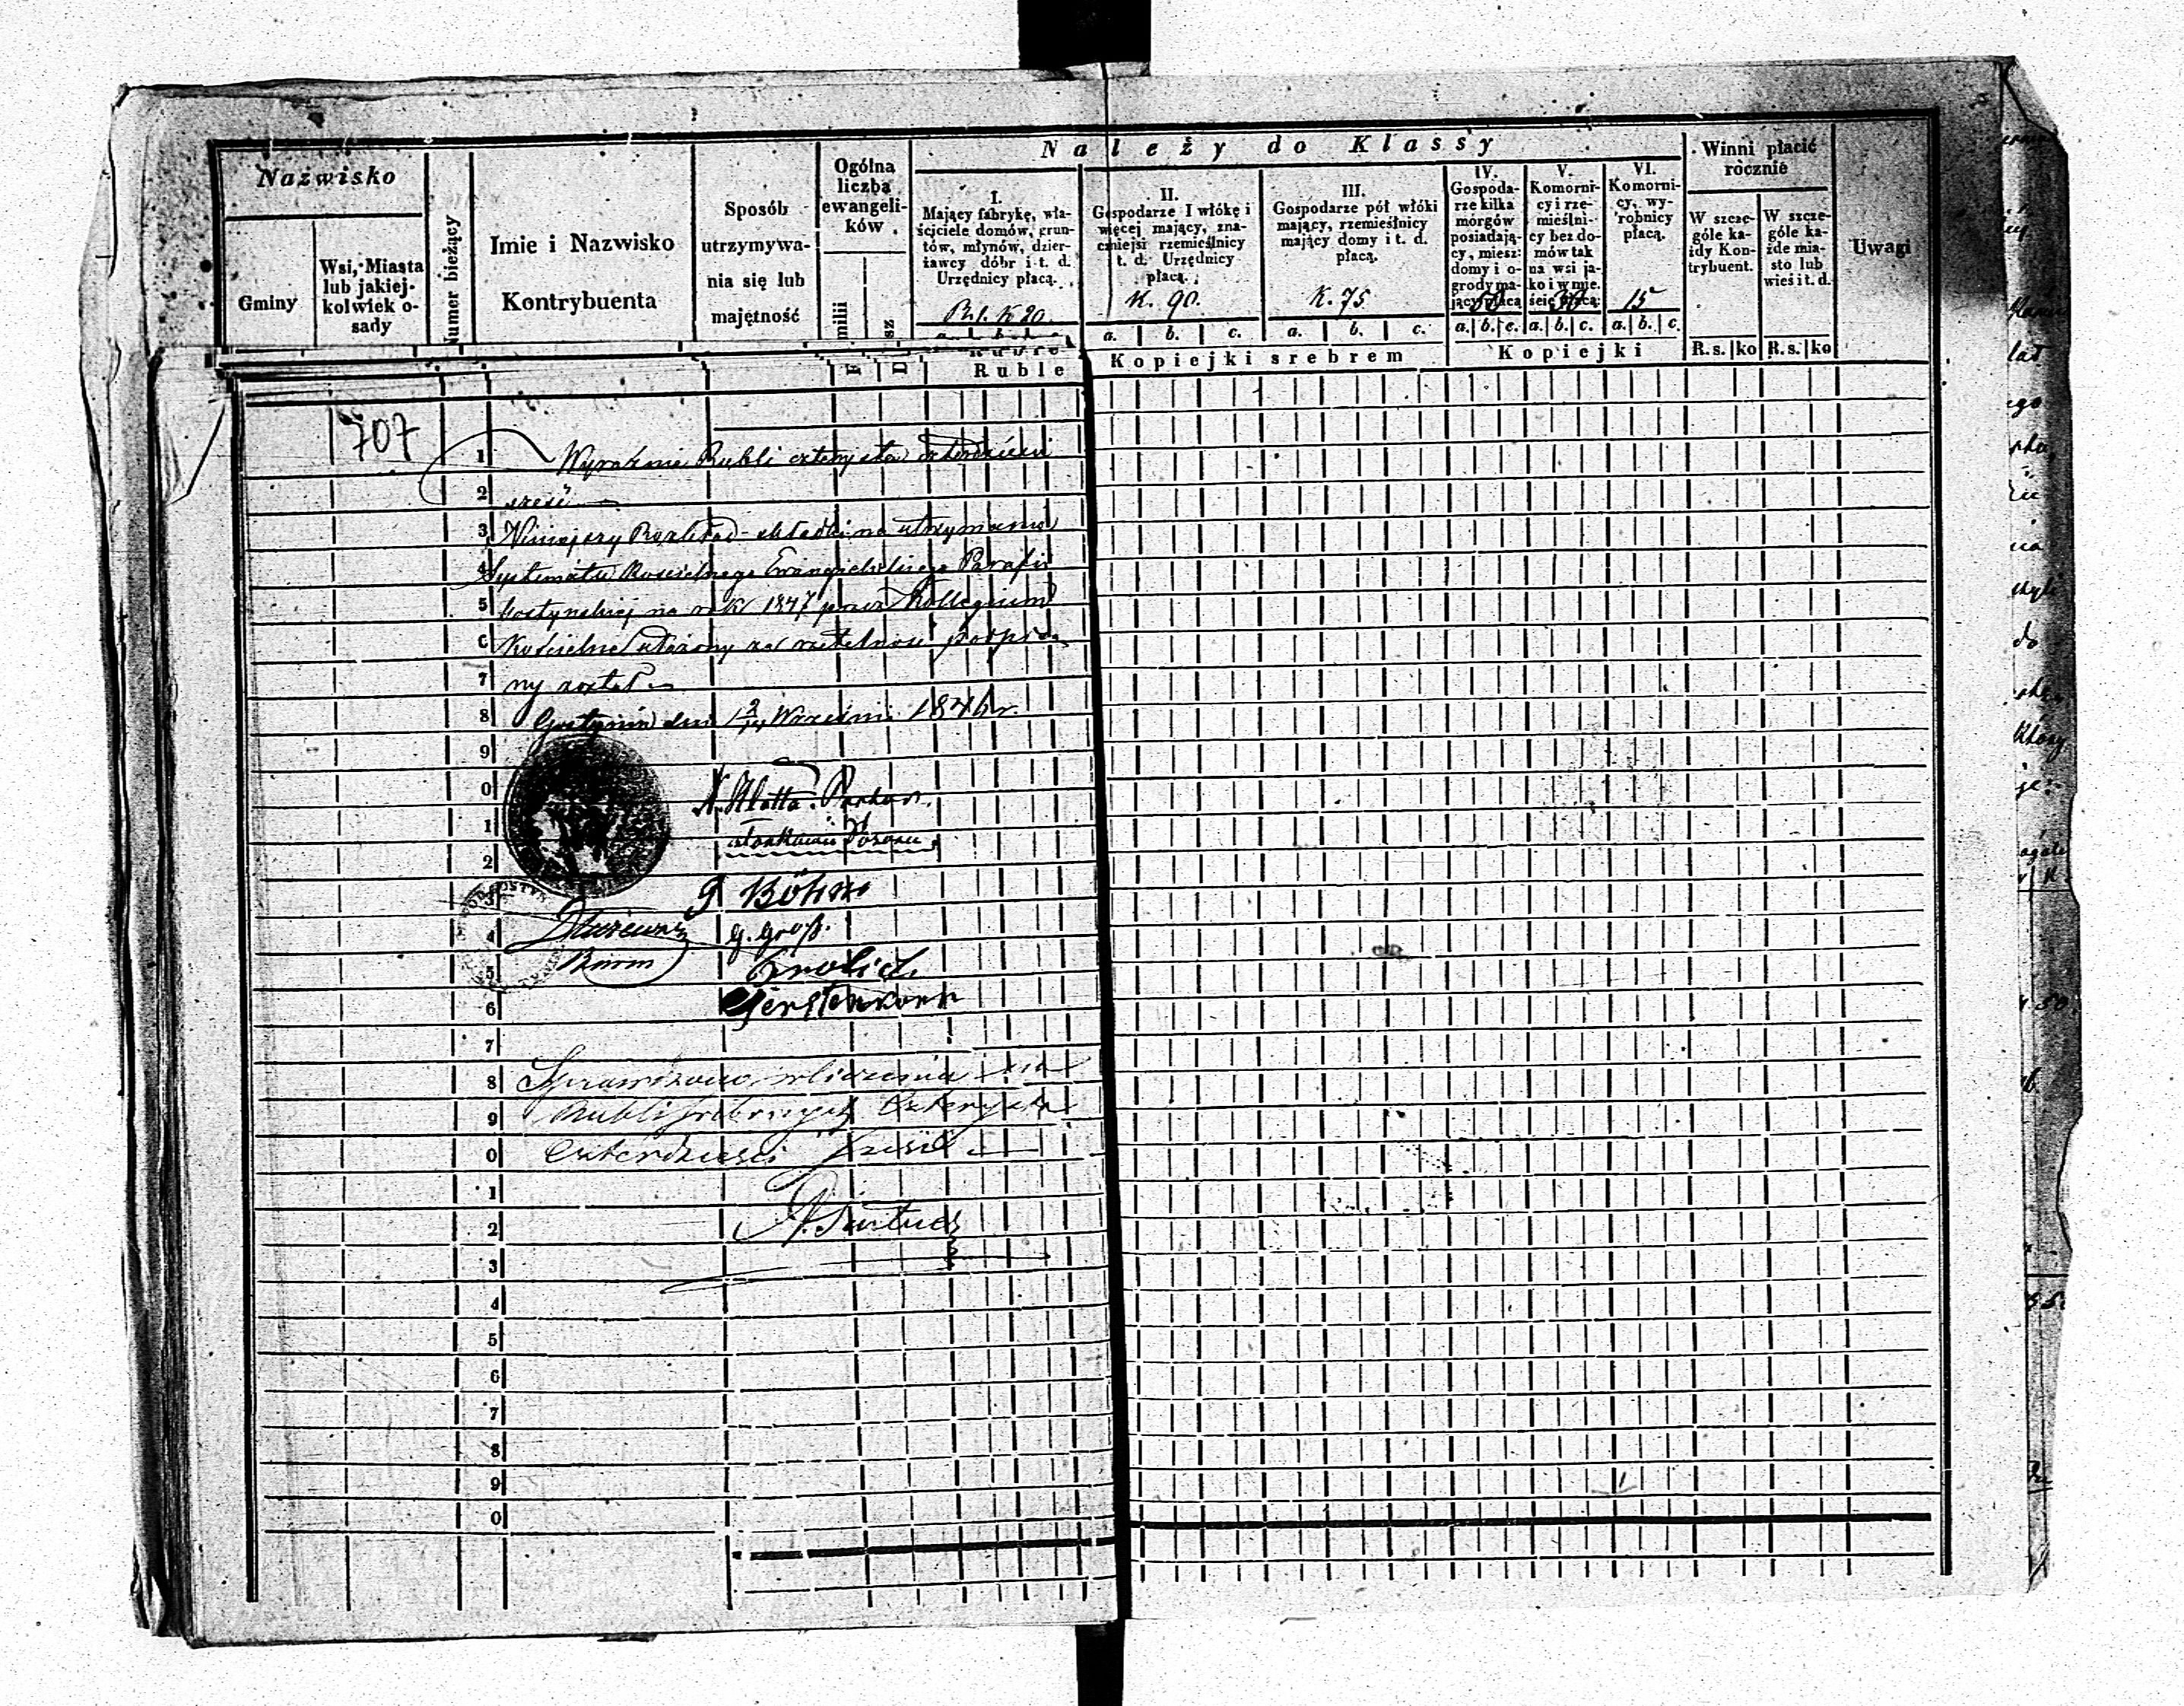 Należy do Klassy
Nazwisko
Gminy
Wsi, Miasta
lub jakiej-
kolwiek o-
sady
Numer bieżący
Imie i Nazwisko
Kontrybuenta
Sposób
utrzymywa-
nia się lub
majętność
Ogólna
liczba
ewangeli-
ków
I.
Mający fabrykę, wła-
ściciele domów, grun-
tów, młynów, dzier-
żawcy dóbr i t. d.
Urzędnicy płacą.
R. 1. K 20.
Ruble
II.
Gospodarze I włókę i
więcej mający, zna-
czniejsi rzemieślnicy
t. d. Urzędnicy
płacą.
K. 90.
a. b. c.
III.
Gospodarze pół włóki
mający, rzemieślnicy
mający domy i t. d.
płacą.
K. 75
a. b. c.
Kopiejki srebrem
IV.
Gospoda-
rze kilka
morgów
posiadają-
cy, miesz:
domy i o-
grody ma-
jący płacą
50
a. b. c.
V.
Komorni-
cy i rze-
mieślni-
cy bez do-
mów tak
na wsi ja-
ko i w mie.
ście płacą:
30
a. b. c.
VI.
Komorni-
cy, wy-
robnicy
płacą.
15
a. b. c.
Kopiejki
Winni płacić
rocznie
W szcze-
góle ka-
żdy Kon-
trybuent.
R. s. ko
W szcze-
góle ka-
żde mia-
sto lub
wieś i t. d.
R. s. ko
Uwagi
707
1 Wyraźnie Rubli czterysta czterdzieści
2 sześć
3 Niniejszy Rozkład składki na utrzymanie
4 Systematu Kościelnego Ewangielickiego Parafii
5 Gostynskiej na rok 1847 przez Kollegium
6 Kościelne ułożony za rzetelność podpisa
7 ny został
8 Gostynin dnia Wrzesnia 1846 r.
9
0 Pastor.
1
2
3 Böhm
4 G. Groß.
5
6 Gerstenkorn
7
8 Sprawdzono
9 Rubli srebrnych Czterysta
0 Czterdzieści sześć
1
2
3
4
5
6
7
8
9
0